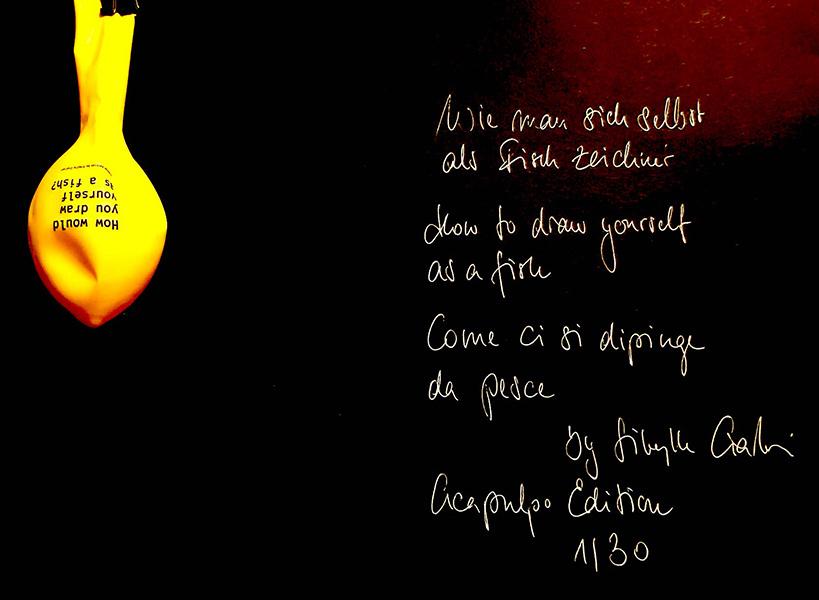 How would
you draw
yourself
as a fish?
Wie man sich selbst
als Fisch zeichnet
How to draw yourself
as a fish
Come ci si dipinge
da pesce
by Sibylle
Acapulpo Edition
1/30